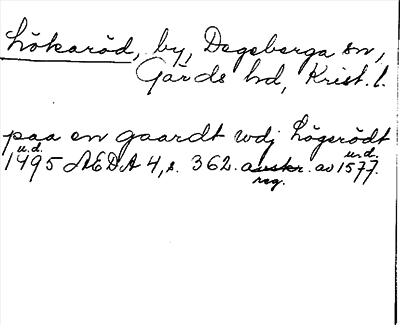 Hökaröd, by, Degeberga sn,
Gärds hd, Krist. l.
paa en gaardt wdj Högsrödt
u.d. u.d.
1495 ÆDA 4, s. 362. avskr. av 1577.
reg.